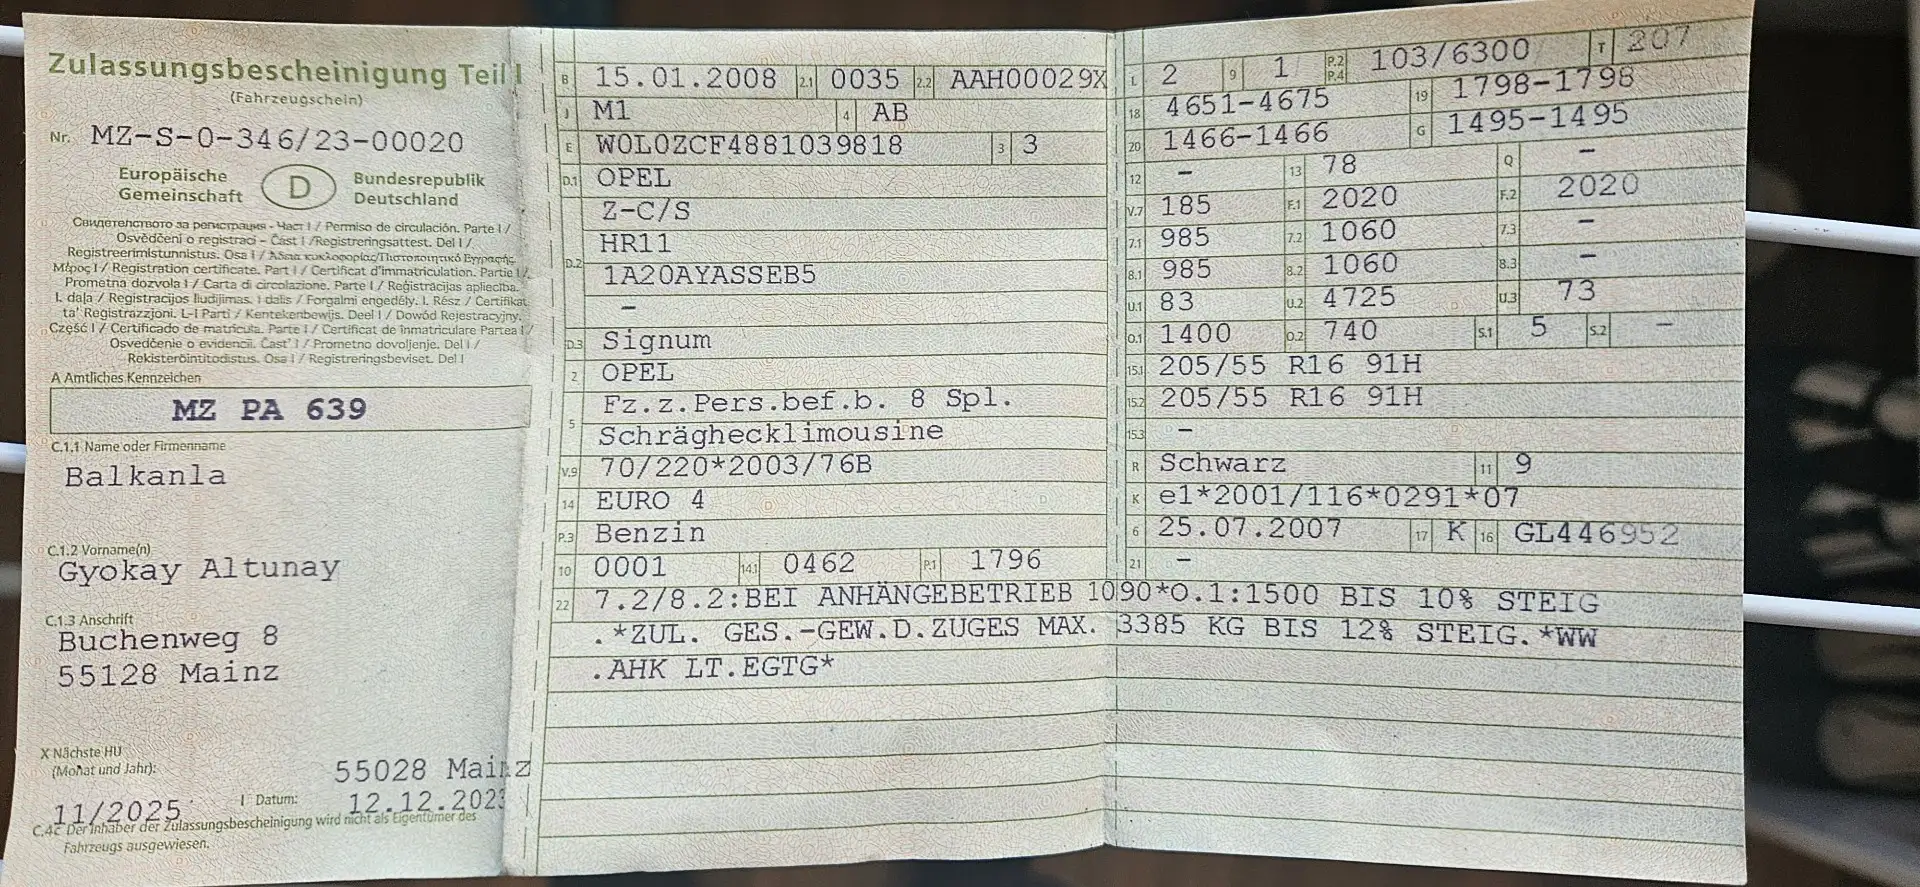 Zulassungsbescheinigung Teil I
(Fahrzeugschein)
Nr. MZ-S-0-346/23-00020
Europäische Gemeinschaft
D
Bundesrepublik Deutschland
Свидетелство за регистрация - Част I / Permiso de circulación. Parte I /
Osvědčení o registraci – Část I /Registreringsattest. Del I /
Registreerimistunnistus. Osa I / Άδεια κυκλοφορίας/Πιστοποιητικό Εγγραφής
Μέρος I / Registration certificate. Part I / Certificat d'immatriculation. Partie I /
Prometna dozvola I / Carta di circolazione. Parte I / Reģistrācijas apliecība.
I. daļa / Registracijos liudijimas. I dalis / Forgalmi engedély. I. Rész / Ċertifikat
ta' Reġistrazzjoni. L-I Parti / Kentekenbewijs. Deel I / Dowód Rejestracyjny.
Część I / Certificado de matrícula. Parte I / Certificat de înmatriculare Partea I /
Osvedčenie o evidencii. Časť I / Prometno dovoljenje. Del I /
Rekisteröintitodistus. Osa I / Registreringsbeviset. Del I
A Amtliches Kennzeichen
MZ PA 639
C.1.1 Name oder Firmenname
Balkanla
C.1.2 Vorname(n)
Gyokay Altunay
C.1.3 Anschrift
Buchenweg 8
55128 Mainz
X Nächste HU
(Monat und Jahr):
55028 Mainz
11/2025
I Datum: 12.12.2023
C.4c Der Inhaber der Zulassungsbescheinigung wird nicht als Eigentümer des
Fahrzeugs ausgewiesen.
B 15.01.2008 2.1 0035 2.2 AAH00029X
J M1 4 AB
E W0L0ZCF4881039818 3 3
D.1 OPEL
Z-C/S
D.2 HR11
1A20AYASSEB5
–
D.3 Signum
2 OPEL
5 Fz.z.Pers.bef.b. 8 Spl.
Schräghecklimousine
V.9 70/220*2003/76B
14 EURO 4
P.3 Benzin
10 0001 14.1 0462 P.1 1796
L 2 9 1 P.2 P.4 103/6300 T 207
18 4651-4675 19 1798-1798
20 1466-1466 G 1495-1495
12 – 13 78 Q –
V.7 185 F.1 2020 F.2 2020
7.1 985 7.2 1060 7.3 –
8.1 985 8.2 1060 8.3 –
U.1 83 U.2 4725 U.3 73
O.1 1400 O.2 740 S.1 5 S.2 –
15.1 205/55 R16 91H
15.2 205/55 R16 91H
15.3 –
R Schwarz 11 9
K e1*2001/116*0291*07
6 25.07.2007 17 K 16 GL446952
21 –
22 7.2/8.2:BEI ANHÄNGEBETRIEB 1090*O.1:1500 BIS 10% STEIG
.*ZUL. GES.-GEW.D.ZUGES MAX. 3385 KG BIS 12% STEIG.*WW
.AHK LT.EGTG*